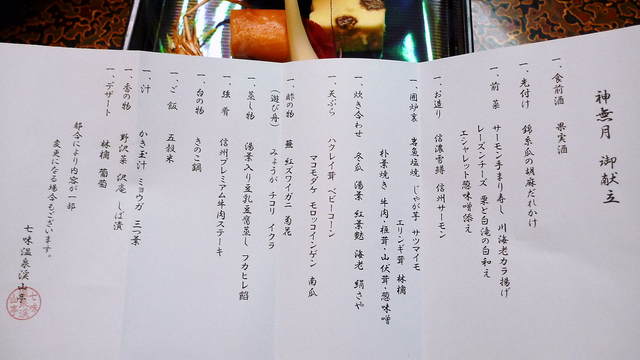 神無月 御献立
一、食前酒 果実酒
一、先付け 錦糸瓜の胡麻だれかけ
一、前菜 サーモン手まり寿し 川海老カラ揚げ
レーズンチーズ 栗と白滝の白和え
エシャレット葱味噌添え
一、お造り 信濃雪鱒 信州サーモン
一、囲炉裏 岩魚塩焼 じゃが芋 サツマイモ
エリンギ茸 林檎
朴葉焼き 牛肉・椎茸・山伏茸・葱味噌
一、炊き合わせ 冬瓜 湯葉 紅葉麩 海老 絹さや
一、天ぷら ハクレイ茸 ベビーコーン
マコモダケ モロッコインゲン 南瓜
一、酢の物 蕪 紅ズワイガニ 菊花
(遊び舟) みょうが チコリ イクラ
一、蒸し物 湯葉入り豆乳豆腐蒸し フカヒレ餡
一、強肴 信州プレミアム牛肉ステーキ
一、台の物 きのこ鍋
一、ご飯 五穀米
一、汁 かき玉汁 ミョウガ 三つ葉
一、香の物 野沢菜 沢庵 しば漬
一、デザート 林檎 葡萄
都合により内容が一部
変更になる場合もございます。
七味温泉渓山亭